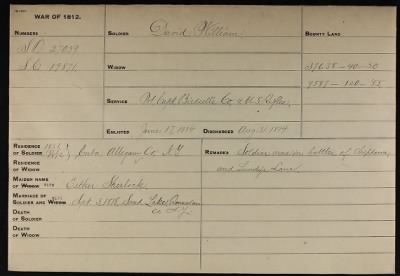 WAR OF 1812.
NUMBERS
SOLDIER David William
BOUNTY LAND
S.O. 27039
S.C. 19871
WIDOW
37638-40-50
9587-120-55
SERVICE Pvt Capt Birdsall's Co U.S. Rifles
ENLISTED June 17, 1814 DISCHARGED Aug. 31, 1814
RESIDENCE OF SOLDIER Cuba Allegany Co N.Y.
RESIDENCE OF WIDOW
REMARKS Soldier was in battles of Chippewa
and Lundy's Lane
MAIDEN NAME OF WIDOW Esther Sherlock
MARRIAGE OF SOLDIER AND WIDOW Sept 3, 1818
DEATH OF SOLDIER
DEATH OF WIDOW